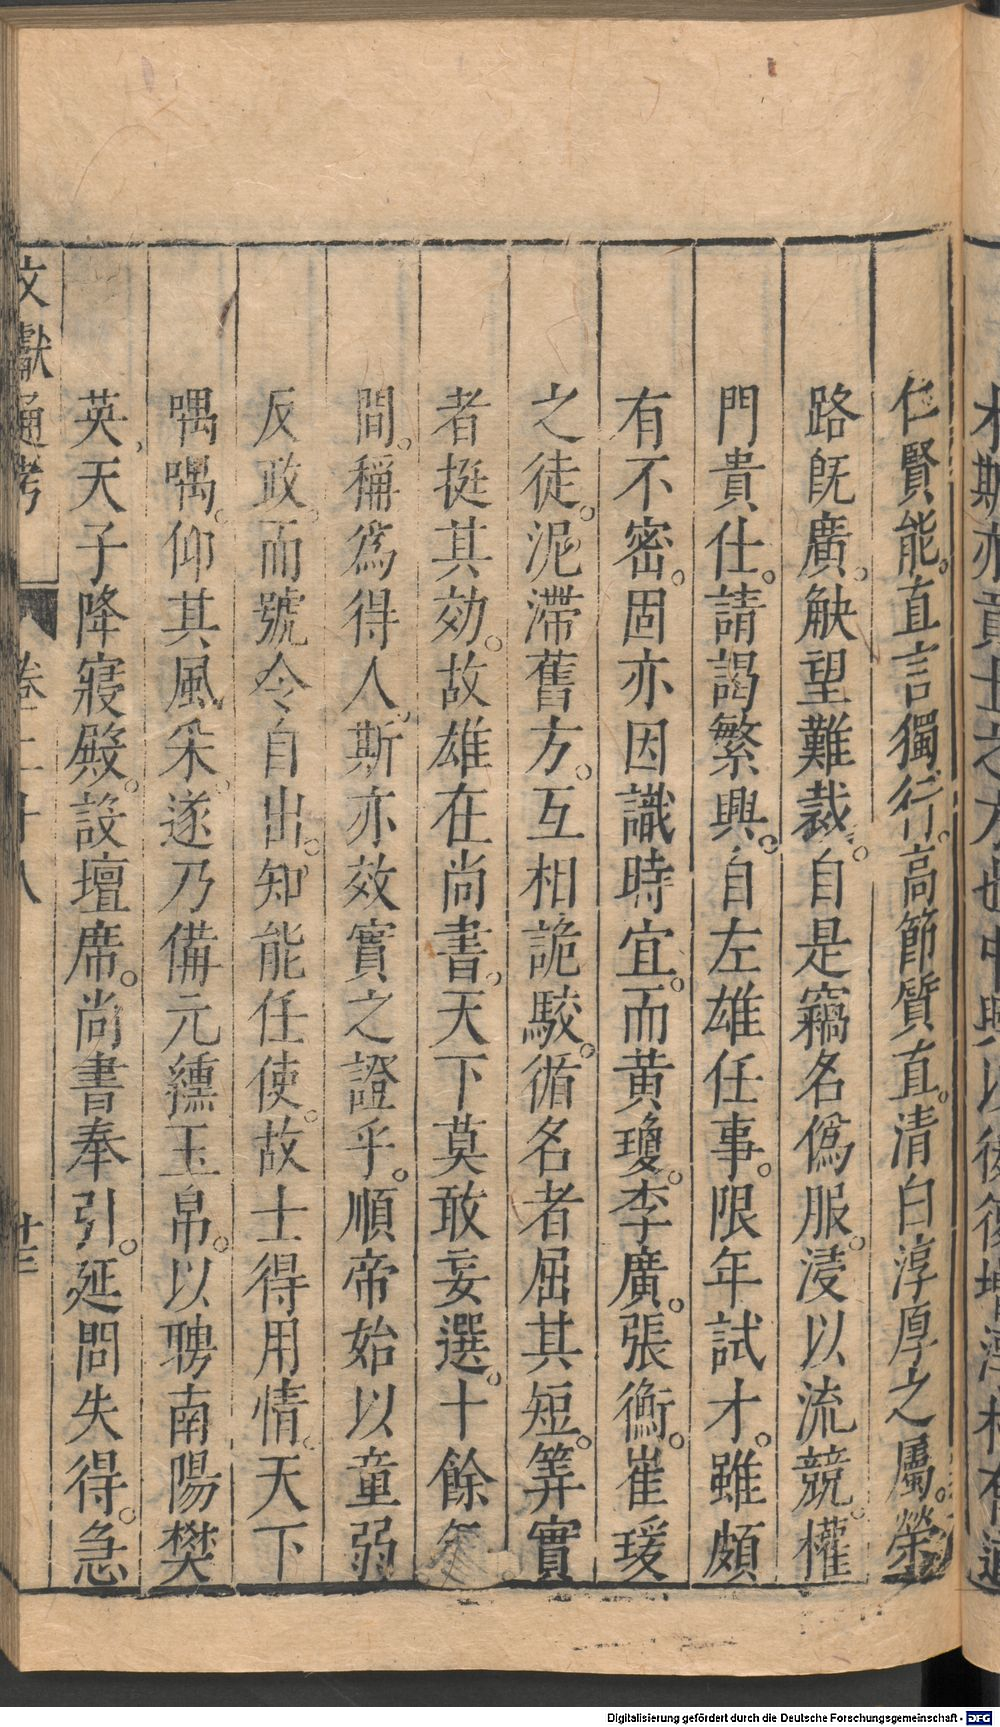 仁賢能。直言獨行。高節質直。清白淳厚之屬。榮
路旣廣。觖望難裁。自是竊名僞服。浸以流競。權
門貴仕。請謁繁興。自左雄任事。限年試才。雖頗
有不密。固亦因識時宜。而黃瓊。李廣。張衡。崔瑗
之徒。泥滯舊方。互相詭駮。循名者屈其短。筭實
者挺其効。故雄在尚書。天下莫敢妄選。十餘年
間。稱爲得人。斯亦效實之證乎。順帝始以童弱
反政。而號令自出。知能任使。故士得用情。天下
喁喁。仰其風采。遂乃備元纁玉帛。以聘南陽樊
英。天子降寢殿。設壇席。尚書奉引。延問失得。急
文獻通考 卷二十八 廿三
Digitalisierung gefördert durch die Deutsche Forschungsgemeinschaft - DFG